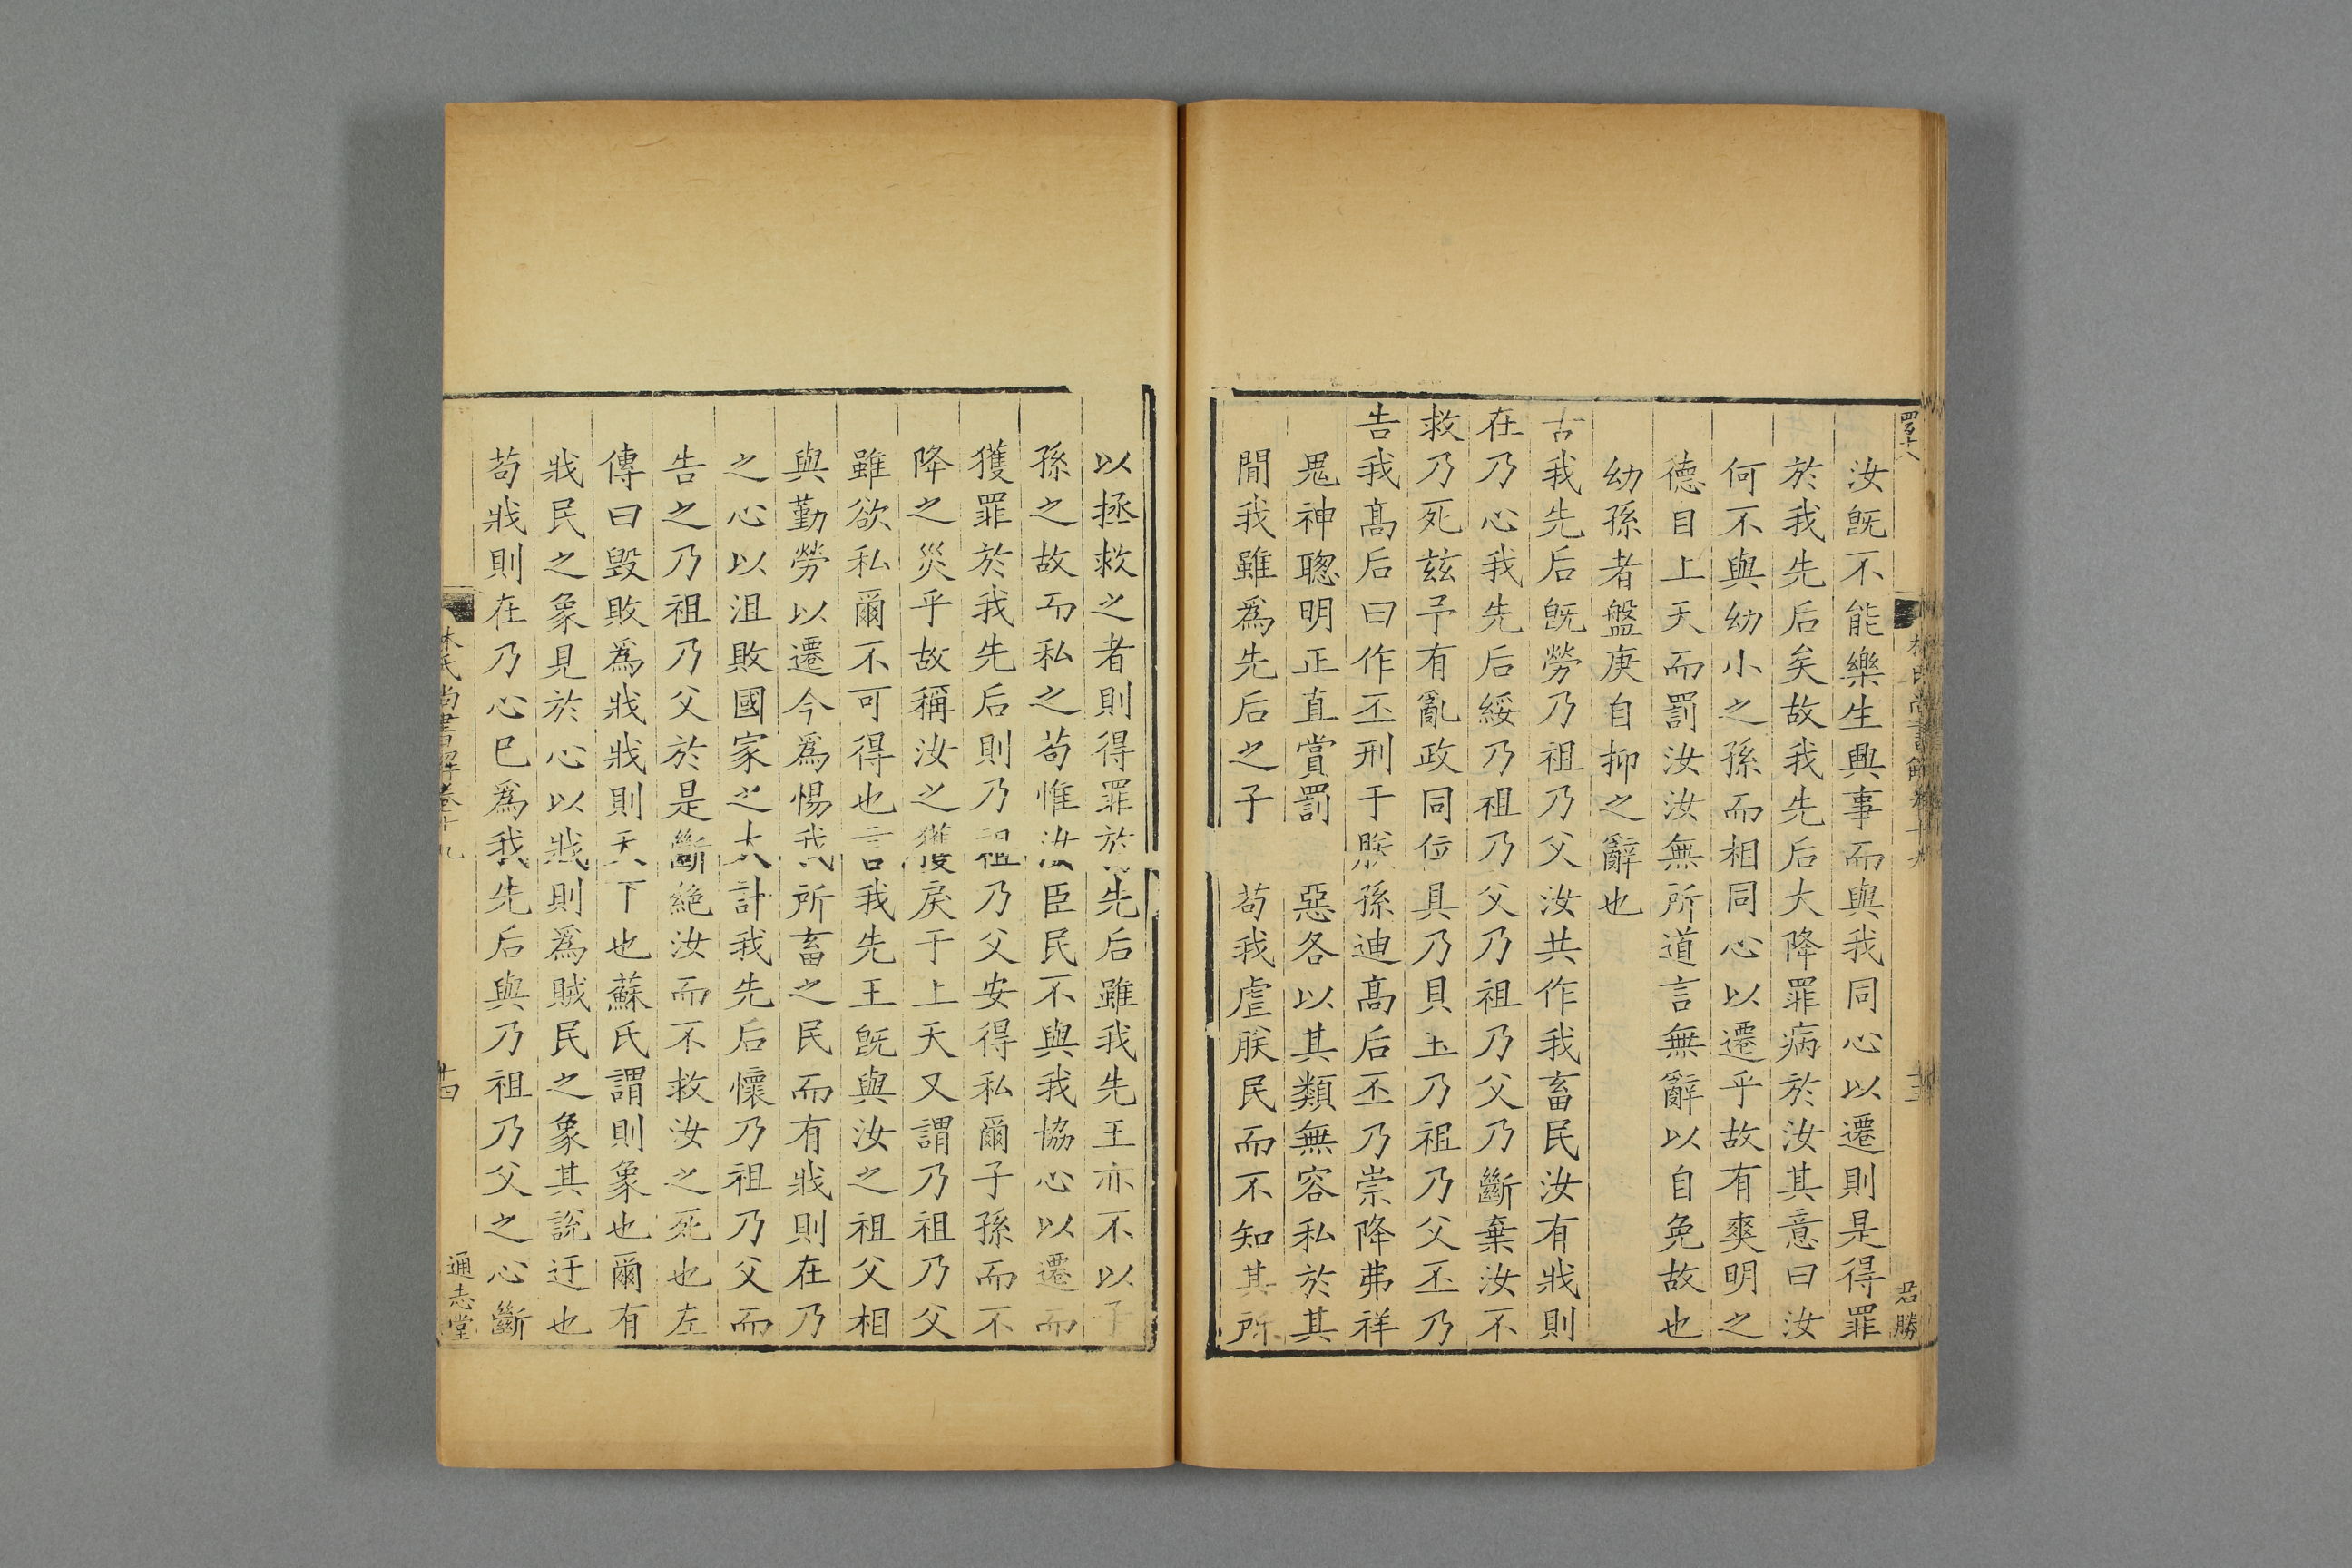 汝旣不能樂生興事而與我同心以遷則是得罪
於我先后矣故我先后大降罪病於汝其意曰汝
何不與幼小之孫而相同心以遷乎故有爽明之
德自上天而罰汝汝無所道言無辭以自免故也
幼孫者盤庚自抑之辭也
古我先后旣勞乃祖乃父汝共作我畜民汝有戕則
在乃心我先后綏乃祖乃父乃祖乃父乃斷棄汝不
救乃死兹予有亂政同位具乃貝玉乃祖乃父丕乃
告我高后曰作丕刑于朕孫迪高后丕乃崇降弗祥
鬼神聰明正直賞罰惡各以其類無容私於其
間我雖爲先后之子苟我虐朕民而不知其所
以拯救之者則得罪於先后雖我先王亦不以子
孫之故而私之苟惟汝臣民不與我協心以遷而
獲罪於我先后則乃祖乃父安得私爾子孫而不
降之災乎故稱汝之獲戾于上天又謂乃祖乃父
雖欲私爾不可得也言我先王旣與汝之祖父相
與勤勞以遷今爲惕我所畜之民而有戕則在乃
之心以沮敗國家之大計我先后懷乃祖乃父而
告之乃祖乃父於是斷絶汝而不救汝之死也左
傳曰毁敗爲戕戕則天下也蘇氏謂則象也爾有
戕民之象見於心以戕則爲賊民之象其說迂也
苟戕則在乃心已爲我先后與乃祖乃父之心斷
林氏尚書解卷十九
廿四
通志堂